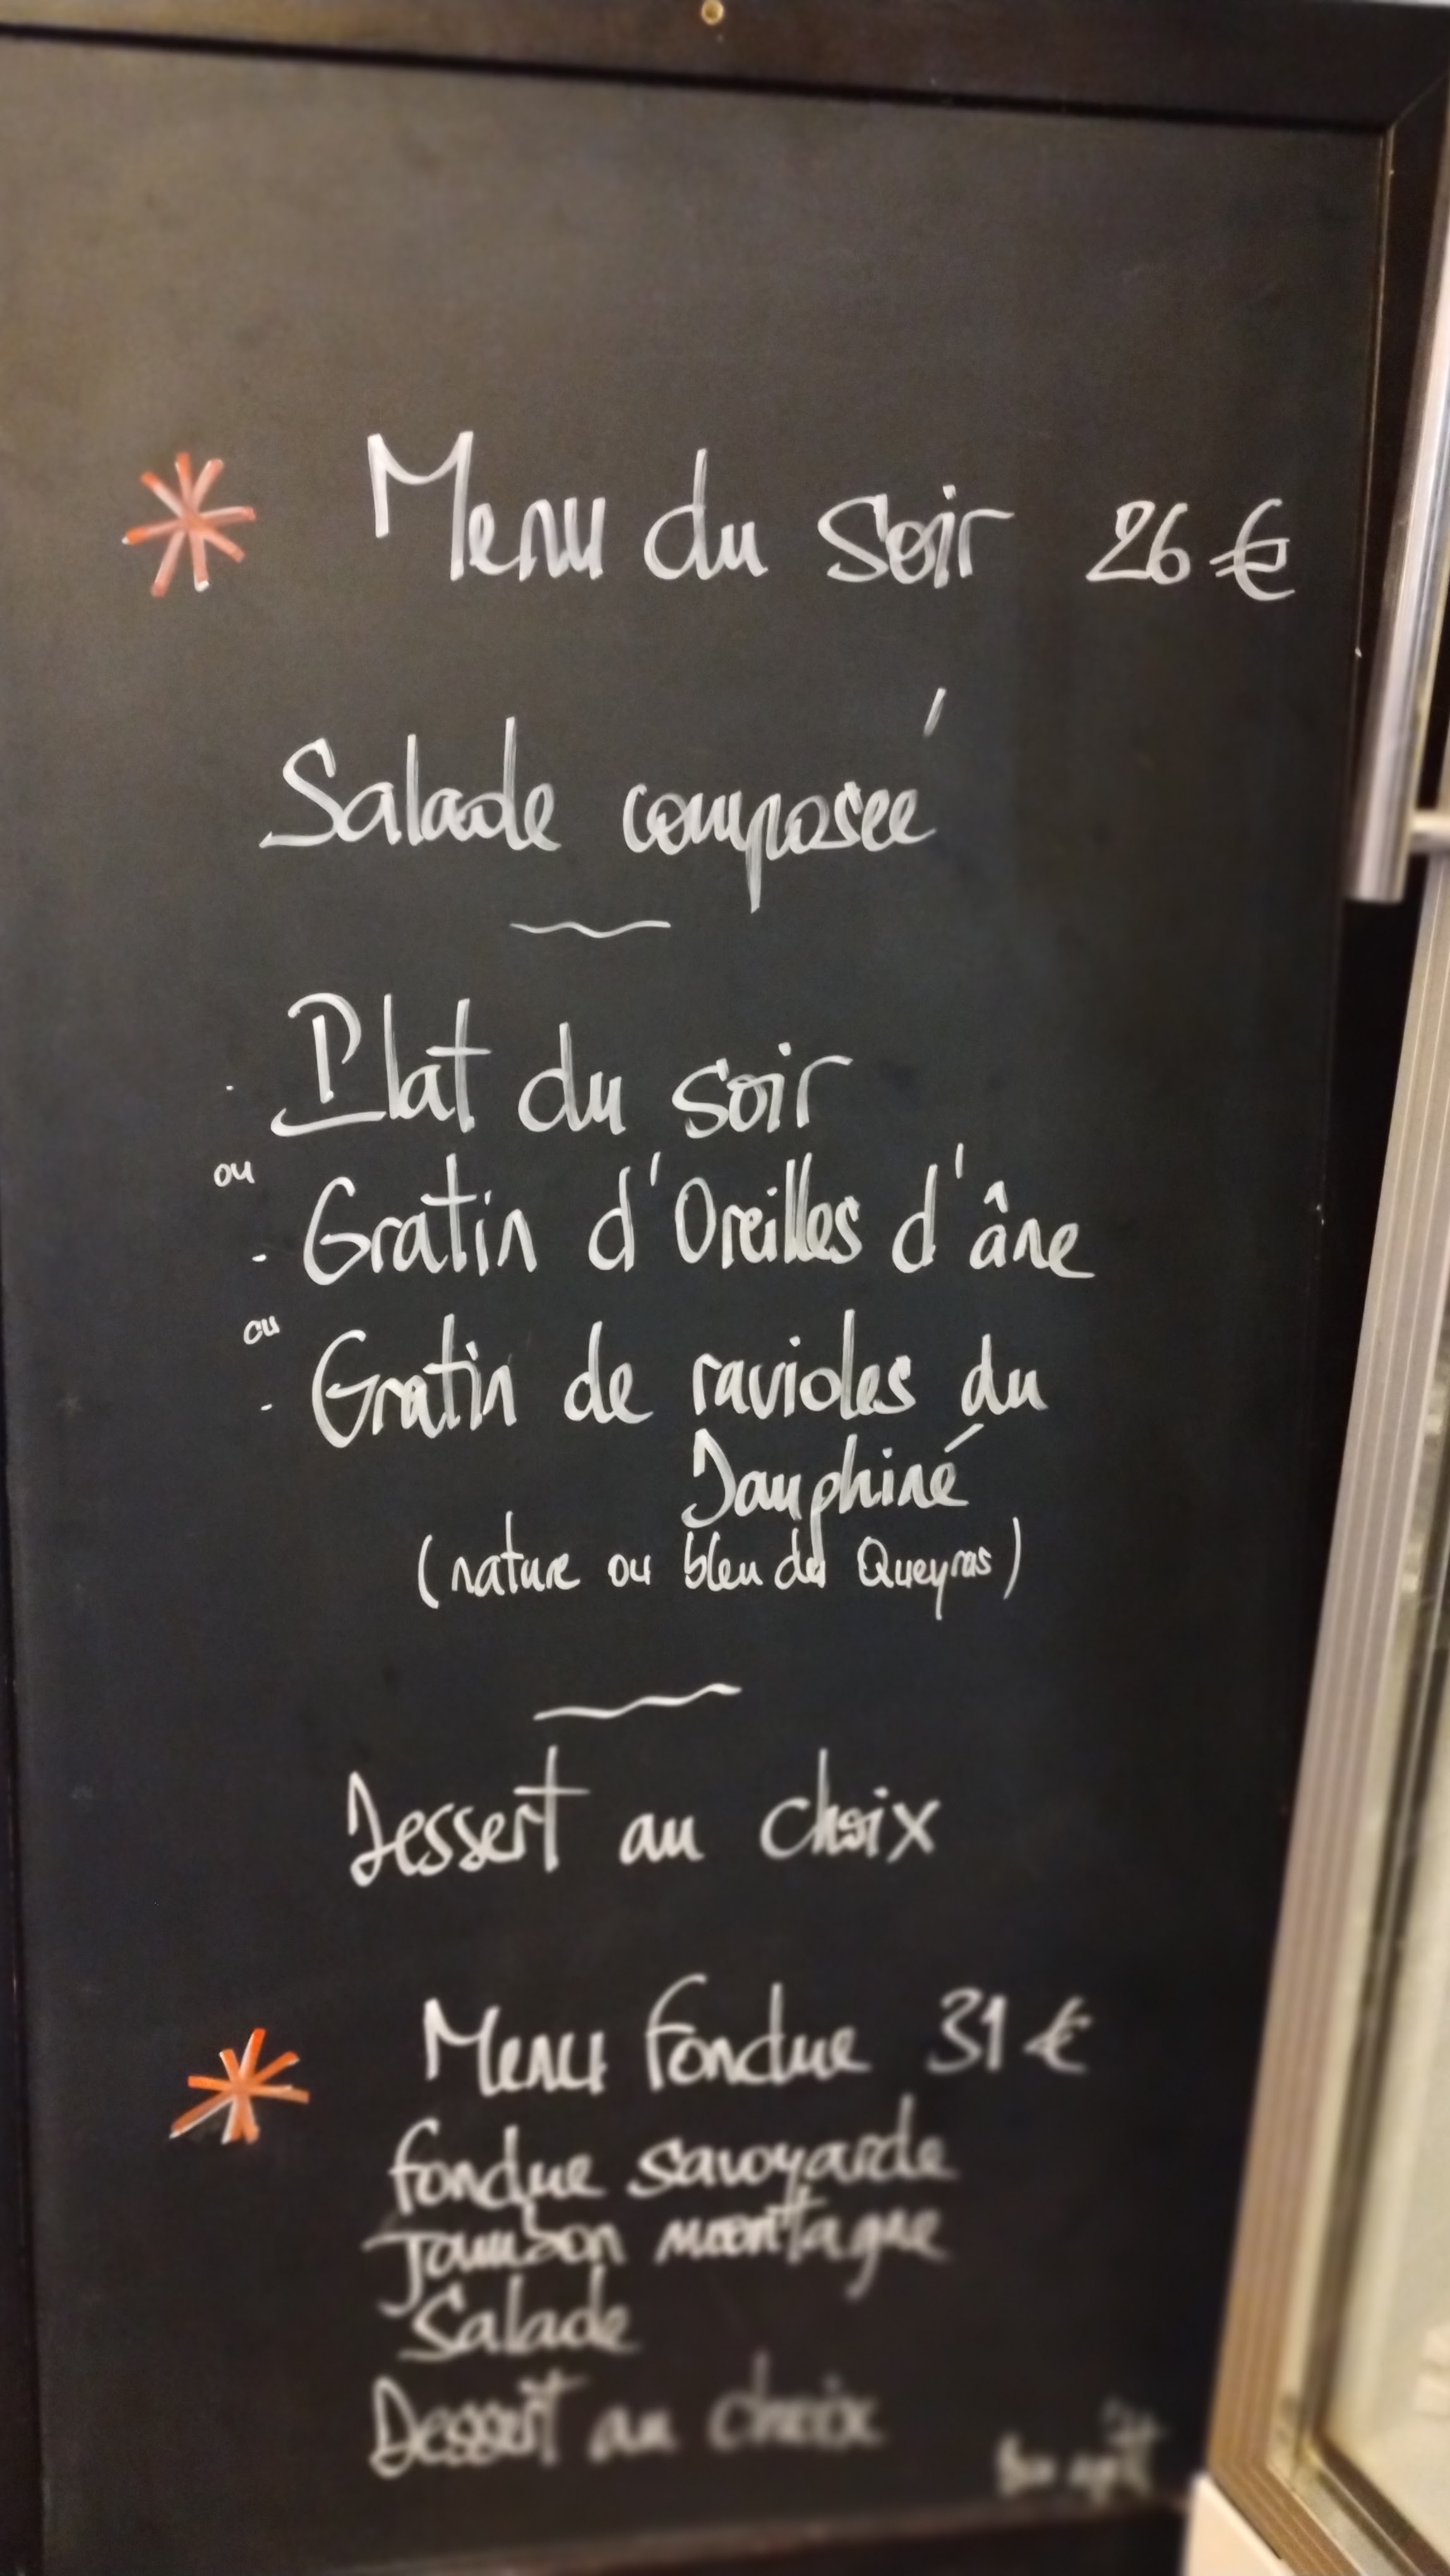 Menu du Soir 26 €
Salade composée
Plat du soir
ou
- Gratin d'Oreilles d'âne
ou
- Gratin de ravioles du
Dauphiné
(nature ou bleu du Queyras)
Dessert au choix
Menu Fondue 31 €
Fondue savoyarde
Jambon montagne
Salade
Dessert au choix